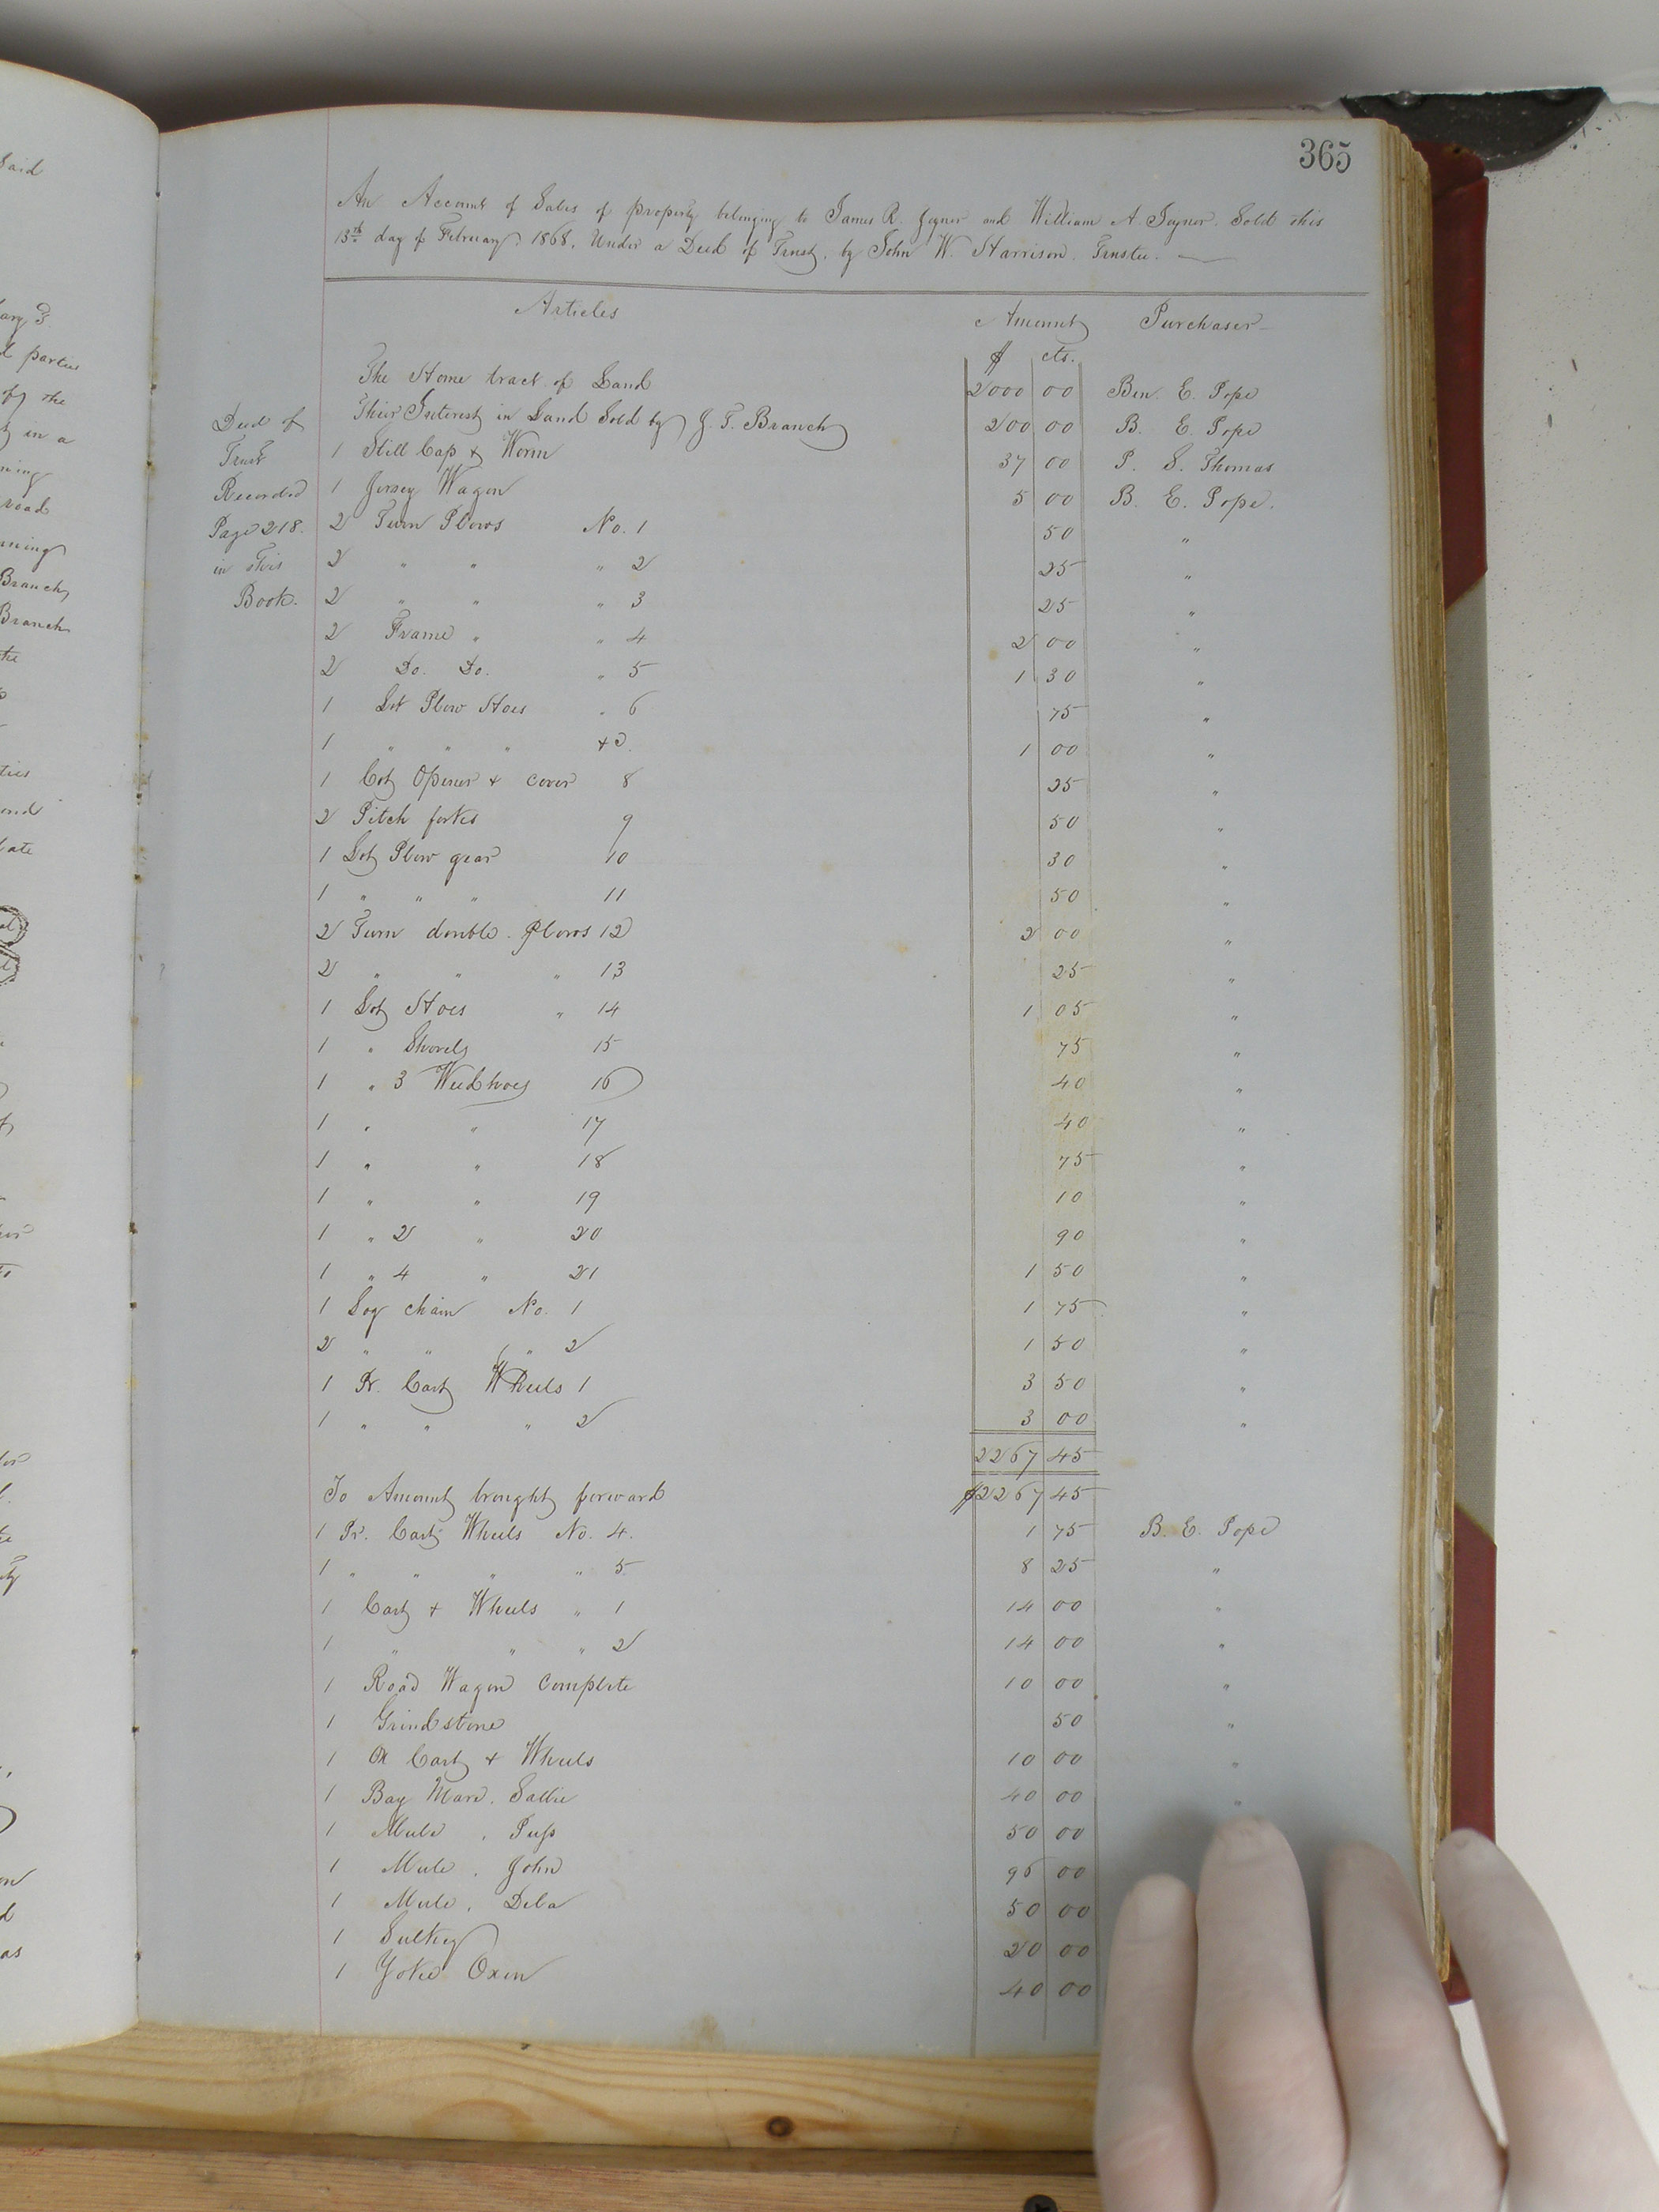 365
An Account of Sales of property belonging to James R. Joyner and William A. Joyner. Sold this
13th day of February 1868. Under a Deed of Trust, by John W. Harrison. Trustee.
Articles Amount Purchaser
$ cts.
The Home tract of Land 2000 00 Ben. E. Pope
Their Interest in Land Sold by J. T. Branch 200 00 B. E. Pope
1 Still Cap & Worm 37 00 P. S. Thomas
1 Jersey Wagon 5 00 B. E. Pope.
2 Turn Plows No. 1 50 "
2 " " " 2 25 "
2 " " " 3 25 "
2 Frame " " 4 2 00 "
2 Do. Do. " 5 1 30 "
1 Lot Plow Hoes " 6 75 "
1 " " " 1 00 "
1 Cot Opener & cover 8 25 "
2 Pitch forks 9 50 "
1 Lot Plow gear 10 30 "
1 " " " 11 50 "
2 Turn double Plows 12 2 00 "
2 " " " 13 25 "
1 Lot Hoes " 14 1 05 "
1 " Shovels 15 75 "
1 " 3 Weedhoes 16 40 "
1 " " 17 40 "
1 " " 18 75 "
1 " " 19 10 "
1 " 2 " 20 90 "
1 " 4 " 21 1 50 "
1 Log chain No. 1 1 75 "
2 " " " 2 1 50 "
1 Pr. Cart Wheels 1 3 50 "
1 " " " 2 3 00 "
2267 45
To Amount brought forward $2267 45
1 Pr. Cart Wheels No. 4. 1 75 B. E. Pope
1 " " " " 5 8 25 "
1 Cart & Wheels " 1 14 00 "
1 " " " 2 14 00 "
1 Road Wagon Complete 10 00 "
1 Grindstone 50 "
1 Ox Cart & Wheels 10 00 "
1 Bay Mare. Sallie 40 00 "
1 Mule . Puss 50 00
1 Mule . John 96 00
1 Mule . Dela 50 00
1 Sulkey 20 00
1 Yoke Oxen 40 00
Deed of
Trust
Recorded
Page 218.
in this
Book.
said
parties
of the
in a
road
Branch
Branch